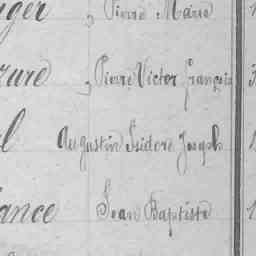 Pierre Marie
Pierre Victor françois
l Augustin Isidore Joseph
ance Jean Baptiste